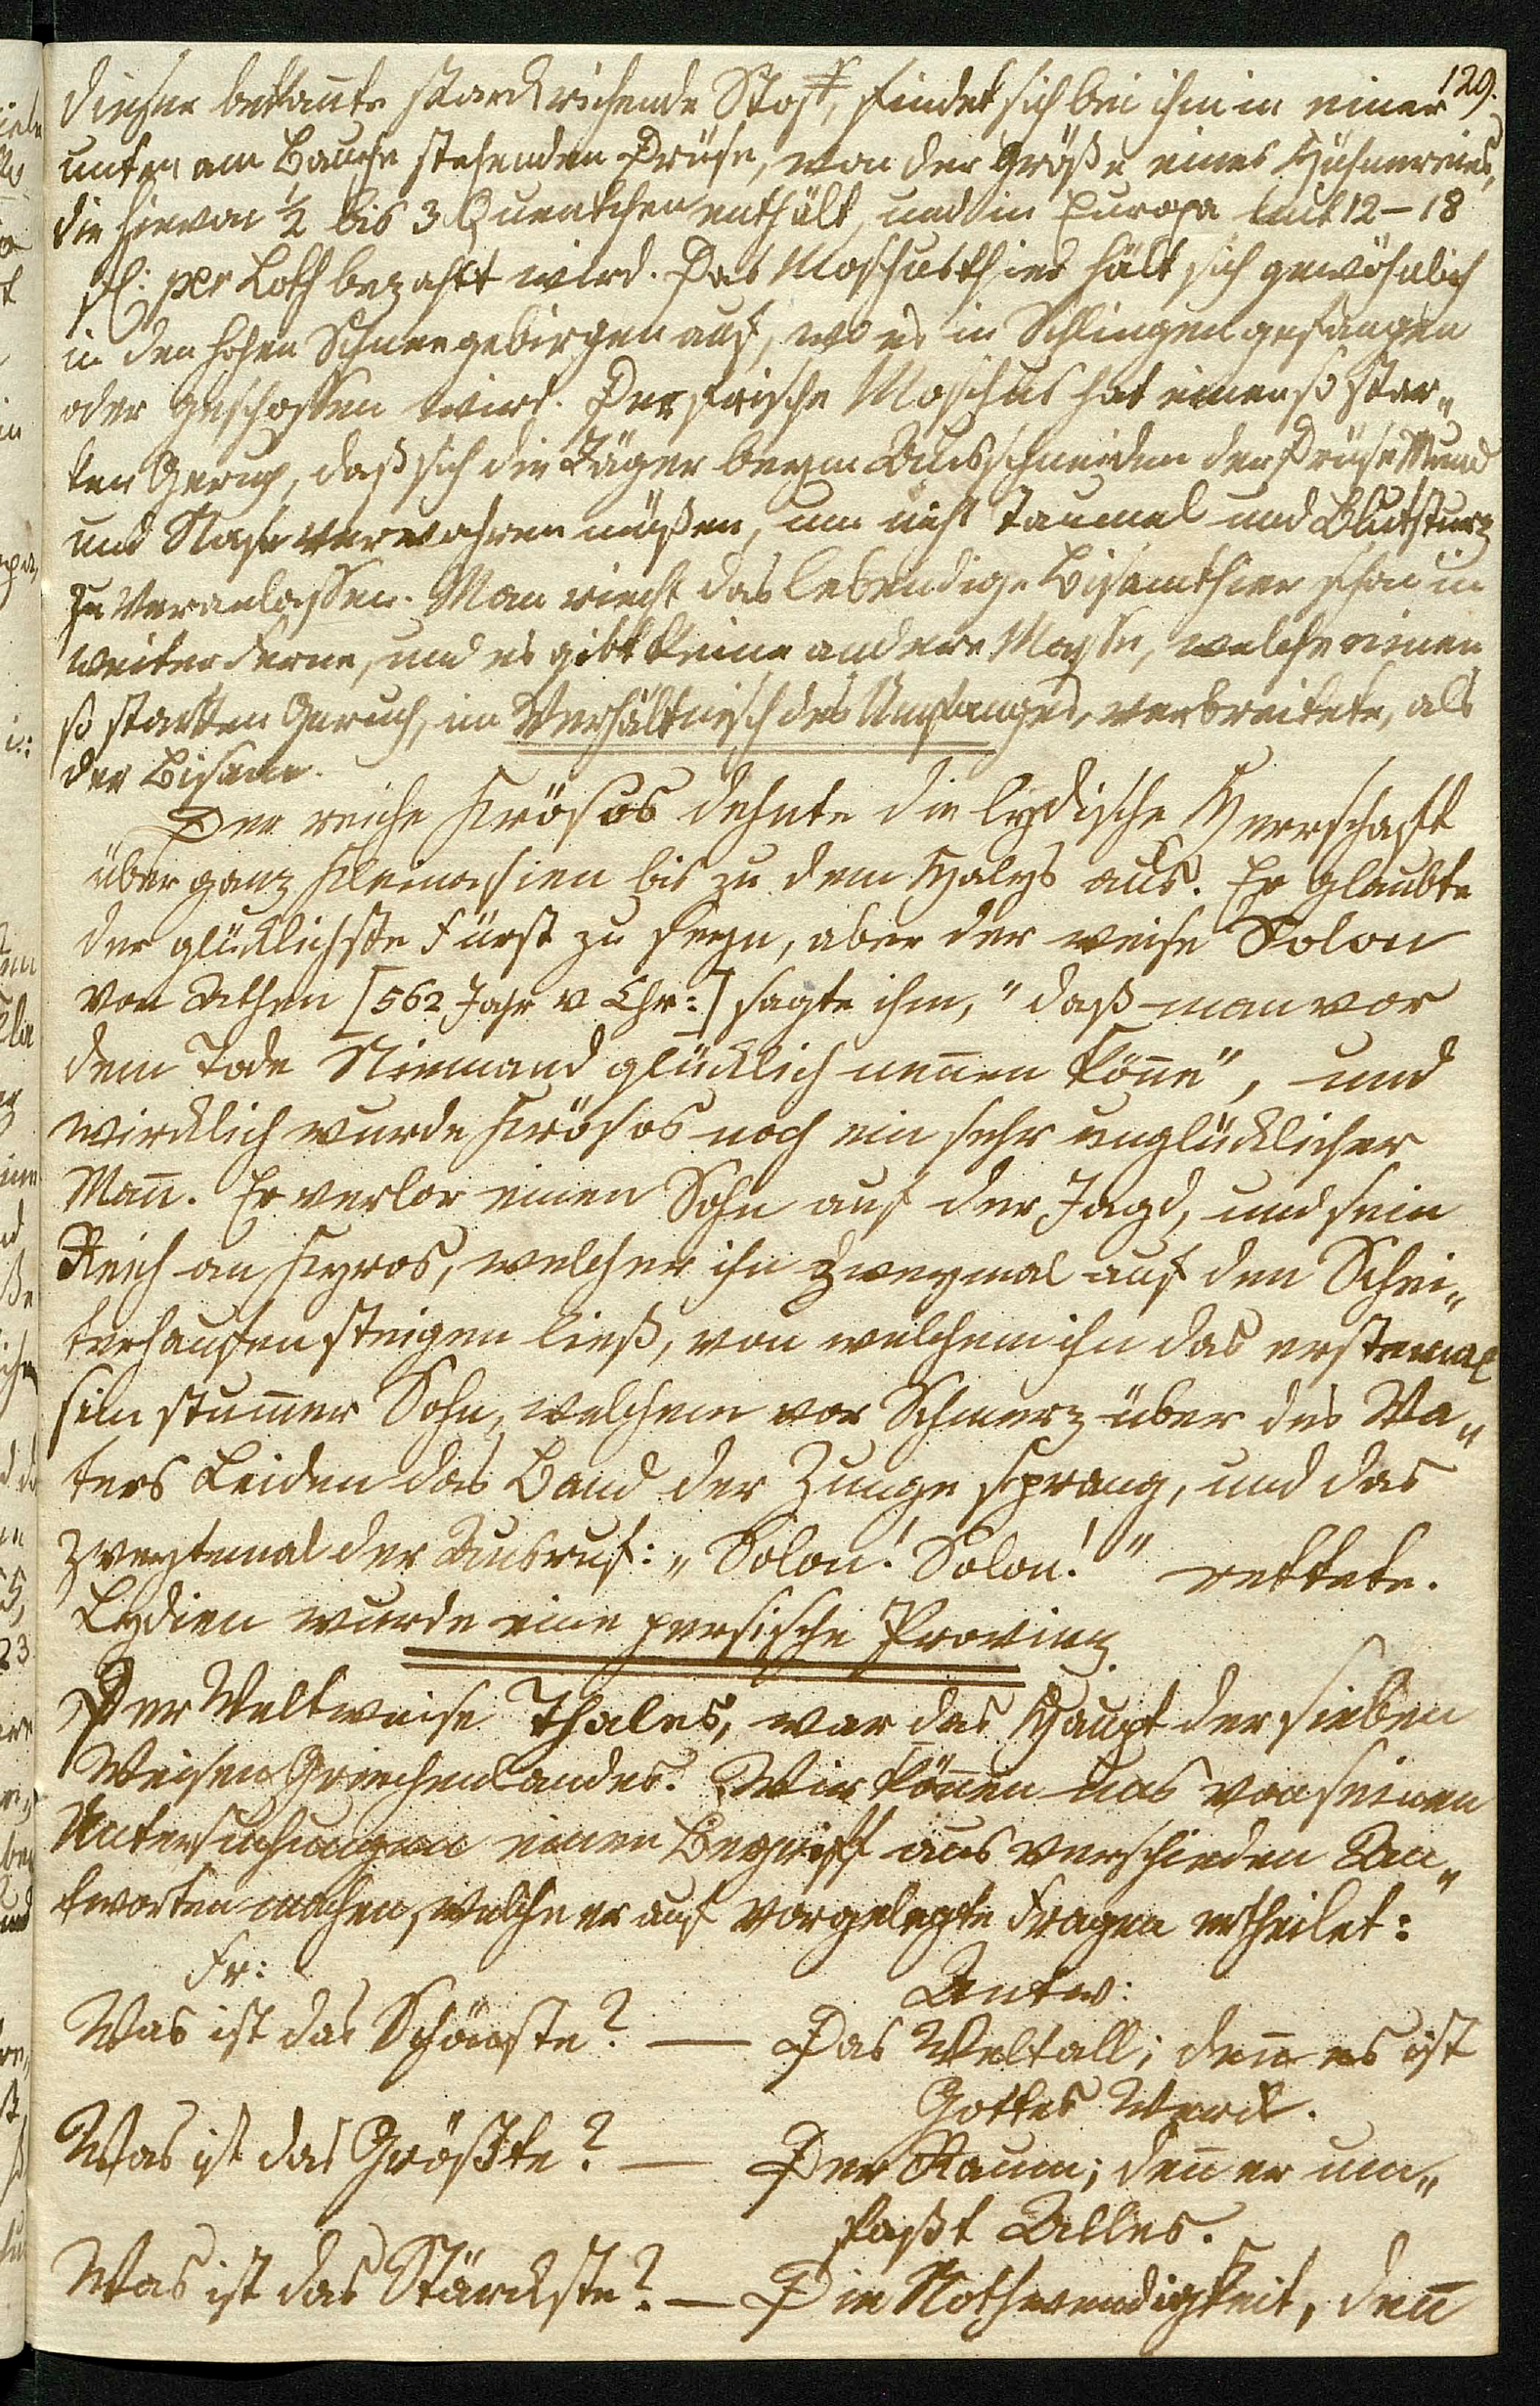 129.
dieser bekan̄te starckriechende Stoff, findet sich bei ihm in einer
unten am Bauche stehenden Drüse, von der Größe eines Hühnereies,
die hievon ½ bis 3 Quentchen enthält, und in Europa mit 12–18
fl: per Loth bezahlt wird. Das Moschusthier hält sich gewöhnlich
in den hohen Schneegebirgen auf, wo es in Schlingen gefangen
oder geschossen wird. Der frische Moschus hat einen so star„
ken Geruch, daß sich die Jäger beym Ausschneiden der Drüse Mund
und Nase verwahren müßen, um nicht Taumel und Blutsturz
zu veranlassen. Man riecht das lebendige Bisamthier schon in
weiter Ferne, und es gibt keine andere Masse, welche einen
so starken Geruch, im Verhältnisch des Umfanges, verbreitete, als
der Bisam.
Der reiche Krösos dehnte die lydische Herrschaft
über ganz Kleinasien bis zu dem Halys aus. Er glaubte
der glücklichste Fürst zu seyn, aber der weise Solon
von Athen [562 Jahr v Chr:] sagte ihm, "daß man vor
dem Tode Niemand glücklich nen̄en kön̄e", und
wircklich wurde Krösos noch ein sehr unglücklicher
Man̄. Er verlor einen Sohn auf der Jagd, und sein
Reich an Kyros, welcher ihn zweymal auf den Schei„
terhaufen steigen ließ, von welchem ihn das erstemal
sein stum̄er Sohn, welchem vor Schmerz über des Va„
ters Leiden das Band der Zunge sprang, und das
zweytemal der Ausruf: „Solon! Solon!" rettete.
Lydien wurde eine persische Provinz
Der Weltweise Thales, war das Haupt der sieben
Weisen Griechenlandes. Wir kön̄en uns von seinen
Untersuchungen einen Begriff aus verschieden An„
tworten machen, welche er auf vorgelegte Fragen ertheilet:
Fr: Antw:
Was ist das Schönste? — Das Weltall; den̄ es ist
Gottes Werck.
Was ist das Größte? — Der Raum; den̄ er um„
faßt Alles.
Was ist das Stärckste? — Die Nothwendigkeit, den̄